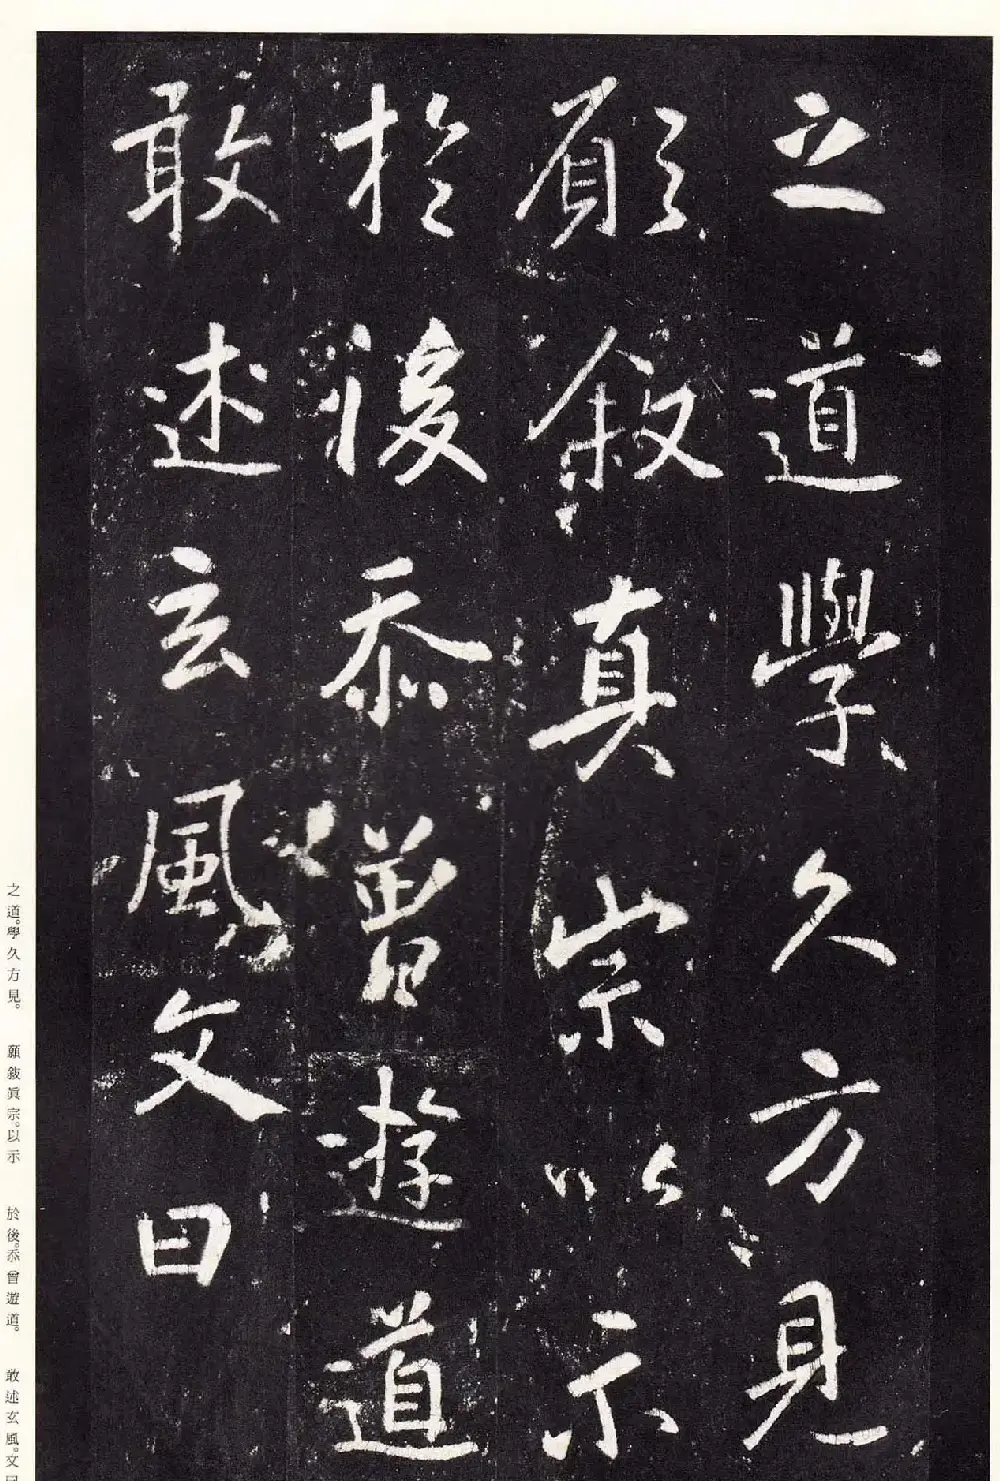 之道學久方見
願敘真宗以示
於後忝曾遊道
敢述玄風文曰
之道。學久方見。 願敍眞宗。以示 於後。忝曾遊道。 敢述玄風。文曰